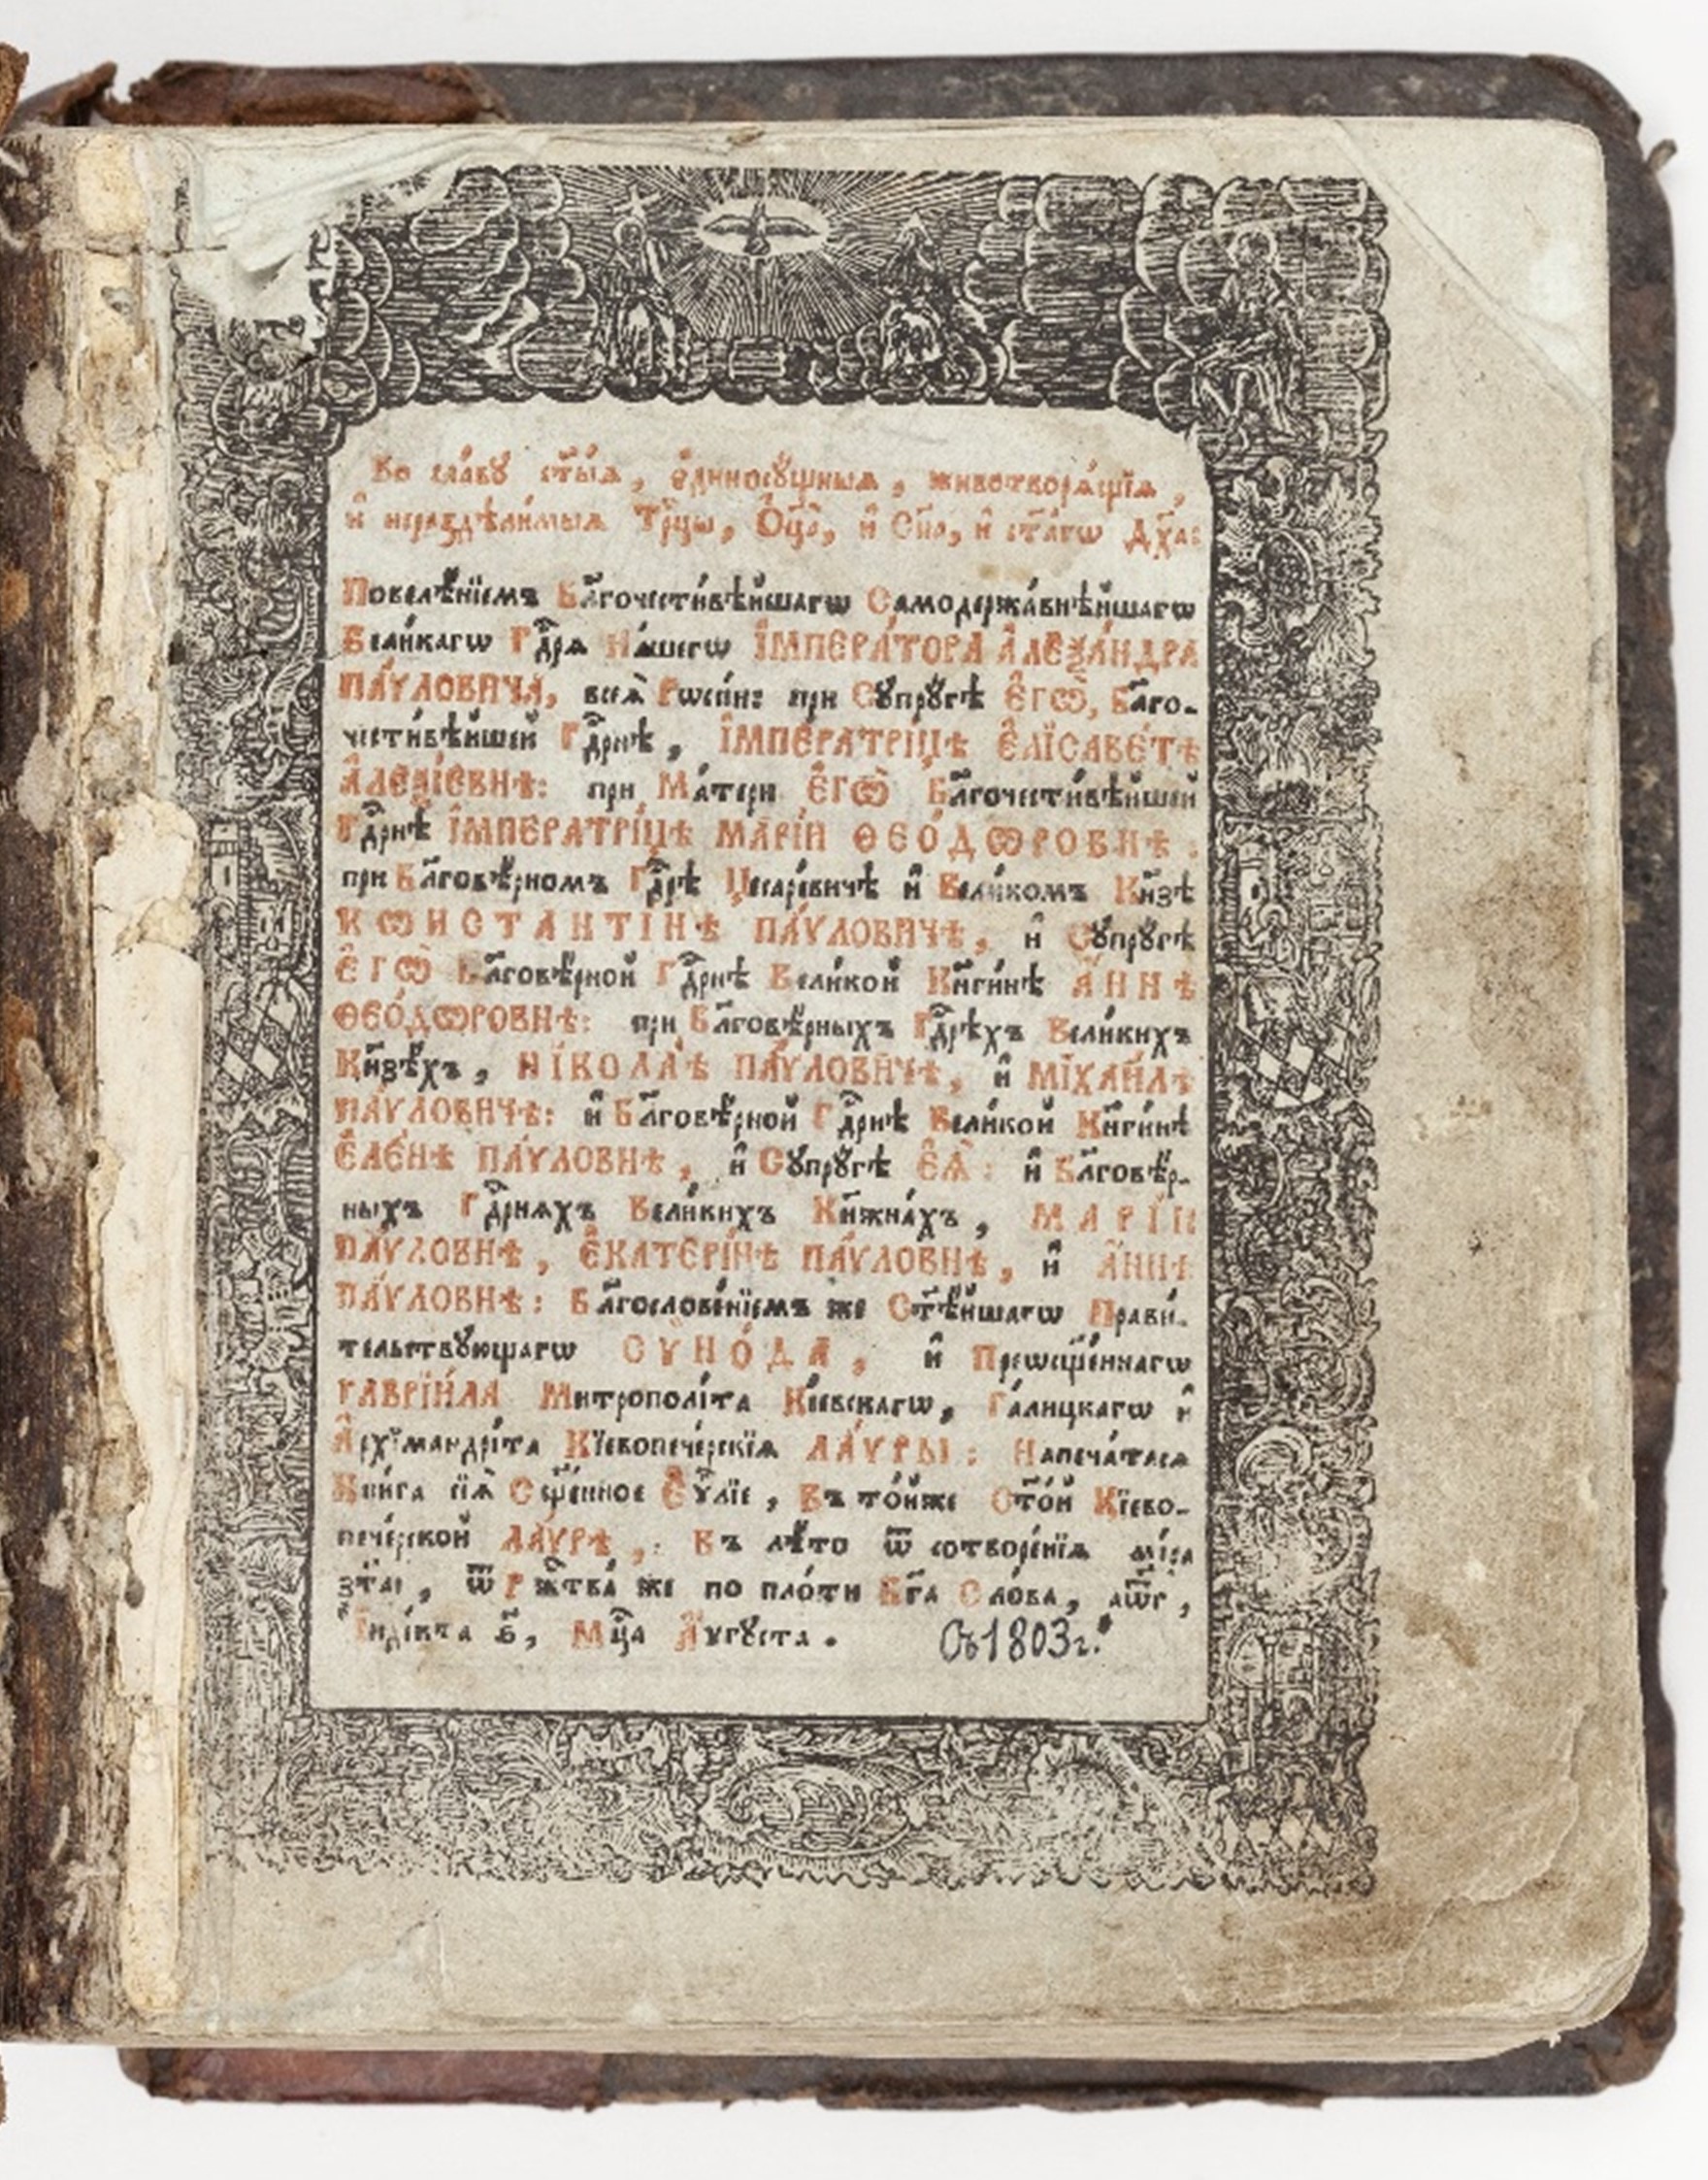 Во сла́вꙋ ст҃ы́ѧ, є҆диносꙋ́щныѧ, животворѧ́щїѧ,
и҆ нераздѣли́мыѧ Тр҃цы, Ѻ҆ц҃а̀, и҆ Сн҃а, и҆ ст҃а́гѡ Дх҃а:
Повелѣ́нїемъ Бл҃гочести́вѣйшагѡ Самодержа́внѣйшагѡ
Вели́кагѡ Гдⷭ҇рѧ На́шегѡ І҆МПЕРА́ТОРА А҆ЛЕѮА́НДРА
ПА́ѴЛОВИЧА, всеѧ̀ Рѡссі́и: при Сꙋпрꙋ́гѣ Є҆ГѠ̀, Бл҃го-
чести́вѣйшей Гдⷭ҇рнѣ, І҆МПЕРАТРІ́ЦѢ Є҆ЛІСАВЕ́ТѢ
А҆ЛЕѮІ́ЕВНѢ: при Ма́тери Є҆ГѠ̀ Бл҃гочести́вѣйшей
Гдⷭ҇рнѣ І҆МПЕРАТРІ́ЦѢ МАРІ́И ѲЕО́ДѠРОВНѢ:
при Бл҃говѣ́рномъ Гдⷭ҇рѣ Цесаре́вичѣ и҆ Вели́комъ Кн҃зѣ
КѠНСТАНТІ́НѢ ПА́ѴЛОВИЧѢ, и҆ Сꙋпрꙋ́гѣ
Є҆ГѠ̀ Бл҃говѣ́рной Гдⷭ҇рнѣ Вели́кой Кн҃ги́нѣ А҆́ННѢ
ѲЕО́ДѠРОВНѢ: при Бл҃говѣ́рныхъ Гдⷭ҇рѣхъ Вели́кихъ
Кн҃зѣ́хъ, НІКОЛА́Ѣ ПА́ѴЛОВИЧѢ, и҆ МІХАИ́ЛѢ
ПА́ѴЛОВИЧѢ: и҆ Бл҃говѣ́рной Гдⷭ҇рнѣ Вели́кой Кн҃ги́нѣ
Є҆ЛЕ́НѢ ПА́ѴЛОВНѢ, и҆ Сꙋпрꙋ́гѣ Є҆Ѧ̀: и҆ Бл҃говѣ́р-
ныхъ Гдⷭ҇рнѧхъ Вели́кихъ Кн҃жна́хъ, МАРІ́И
ПА́ѴЛОВНѢ, Є҆КАТЕРІ́НѢ ПА́ѴЛОВНѢ, и҆ А҆́ННѢ
ПА́ѴЛОВНѢ: Бл҃гослове́нїемъ же Ст҃ѣ́йшагѡ Прави́-
тельствꙋющагѡ СѴНО́ДА, и҆ Преѡсщ҃е́ннагѡ
ГАВРІИ́ЛА Митрополі́та Кі́евскагѡ, Га́лицкагѡ и҆
А҆рхїмандрі́та Кїевопече́рскїѧ ЛА́ѴРЫ: Напеча́тасѧ
Кни́га сїѧ̀ Сщ҃е́нное Є҆ѵⷢ҇лїе, Въ то́йже Ст҃о́й Кїево-
пече́рской ЛА́ѴРѢ,: Въ лѣ́то ѿ сотворе́нїѧ мі́ра
҂зт҃аі, ѿ Рж҃тва̀ же по пло́ти Бг҃а Сло́ва, ҂аѿг҃,
І҆ндї́кта ѕ҃, Мцⷭ҇а А҆́ѵгꙋста. Съ 1803 г.